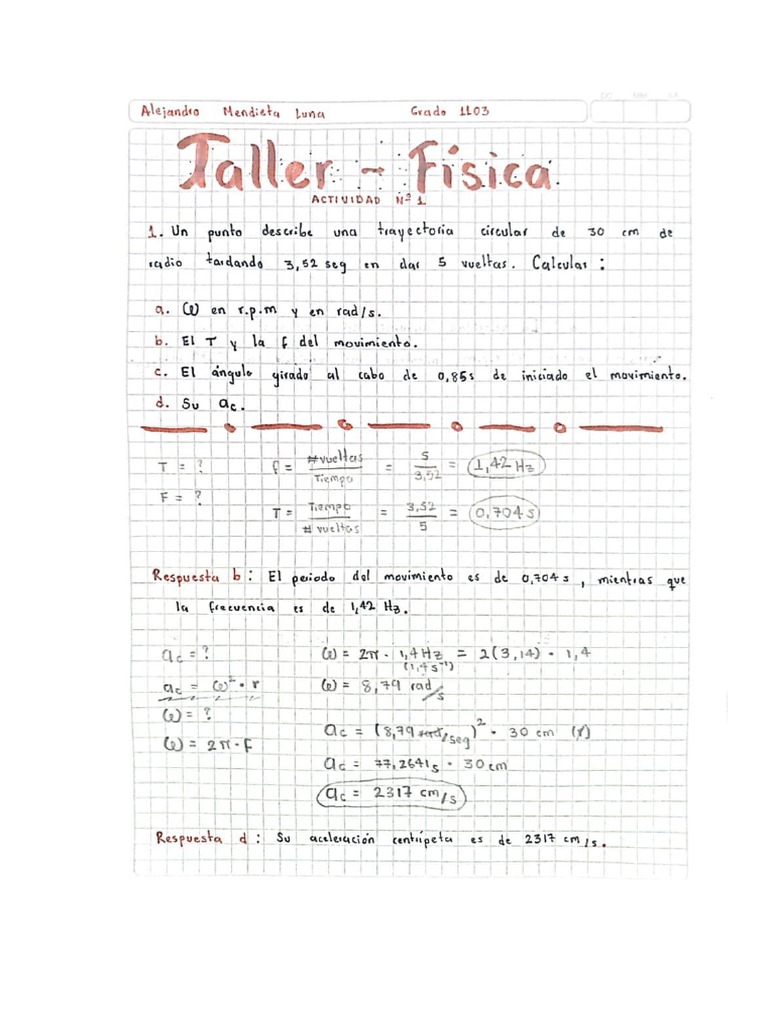 Alejandro Mendieta Luna Grado 1103
Taller - Física
ACTIVIDAD Nº 1
1. Un punto describe una trayectoria circular de 30 cm de
radio tardando 3,52 seg en dar 5 vueltas. Calcular :
a. ω en r.p.m y en rad/s.
b. El T y la f del movimiento.
c. El ángulo girado al cabo de 0,85s de iniciado el movimiento.
d. Su ac.
T = ? f = #vueltas / Tiempo = 5 / 3,52 = 1,42 Hz
F = ?
T = Tiempo / # vueltas = 3,52 / 5 = 0,704 s
Respuesta b : El periodo del movimiento es de 0,704 s , mientras que
la frecuencia es de 1,42 Hz.
ac = ? ω = 2π · 1,4 Hz = 2(3,14) · 1,4
(1,4 s⁻¹)
ac = ω² · r ω = 8,79 rad/s
ω = ?
ω = 2π · F
ac = (8,79 rad/seg)² · 30 cm (r)
ac = 77,2641s · 30 cm
ac = 2317 cm/s
Respuesta d : Su aceleración centrípeta es de 2317 cm/s.